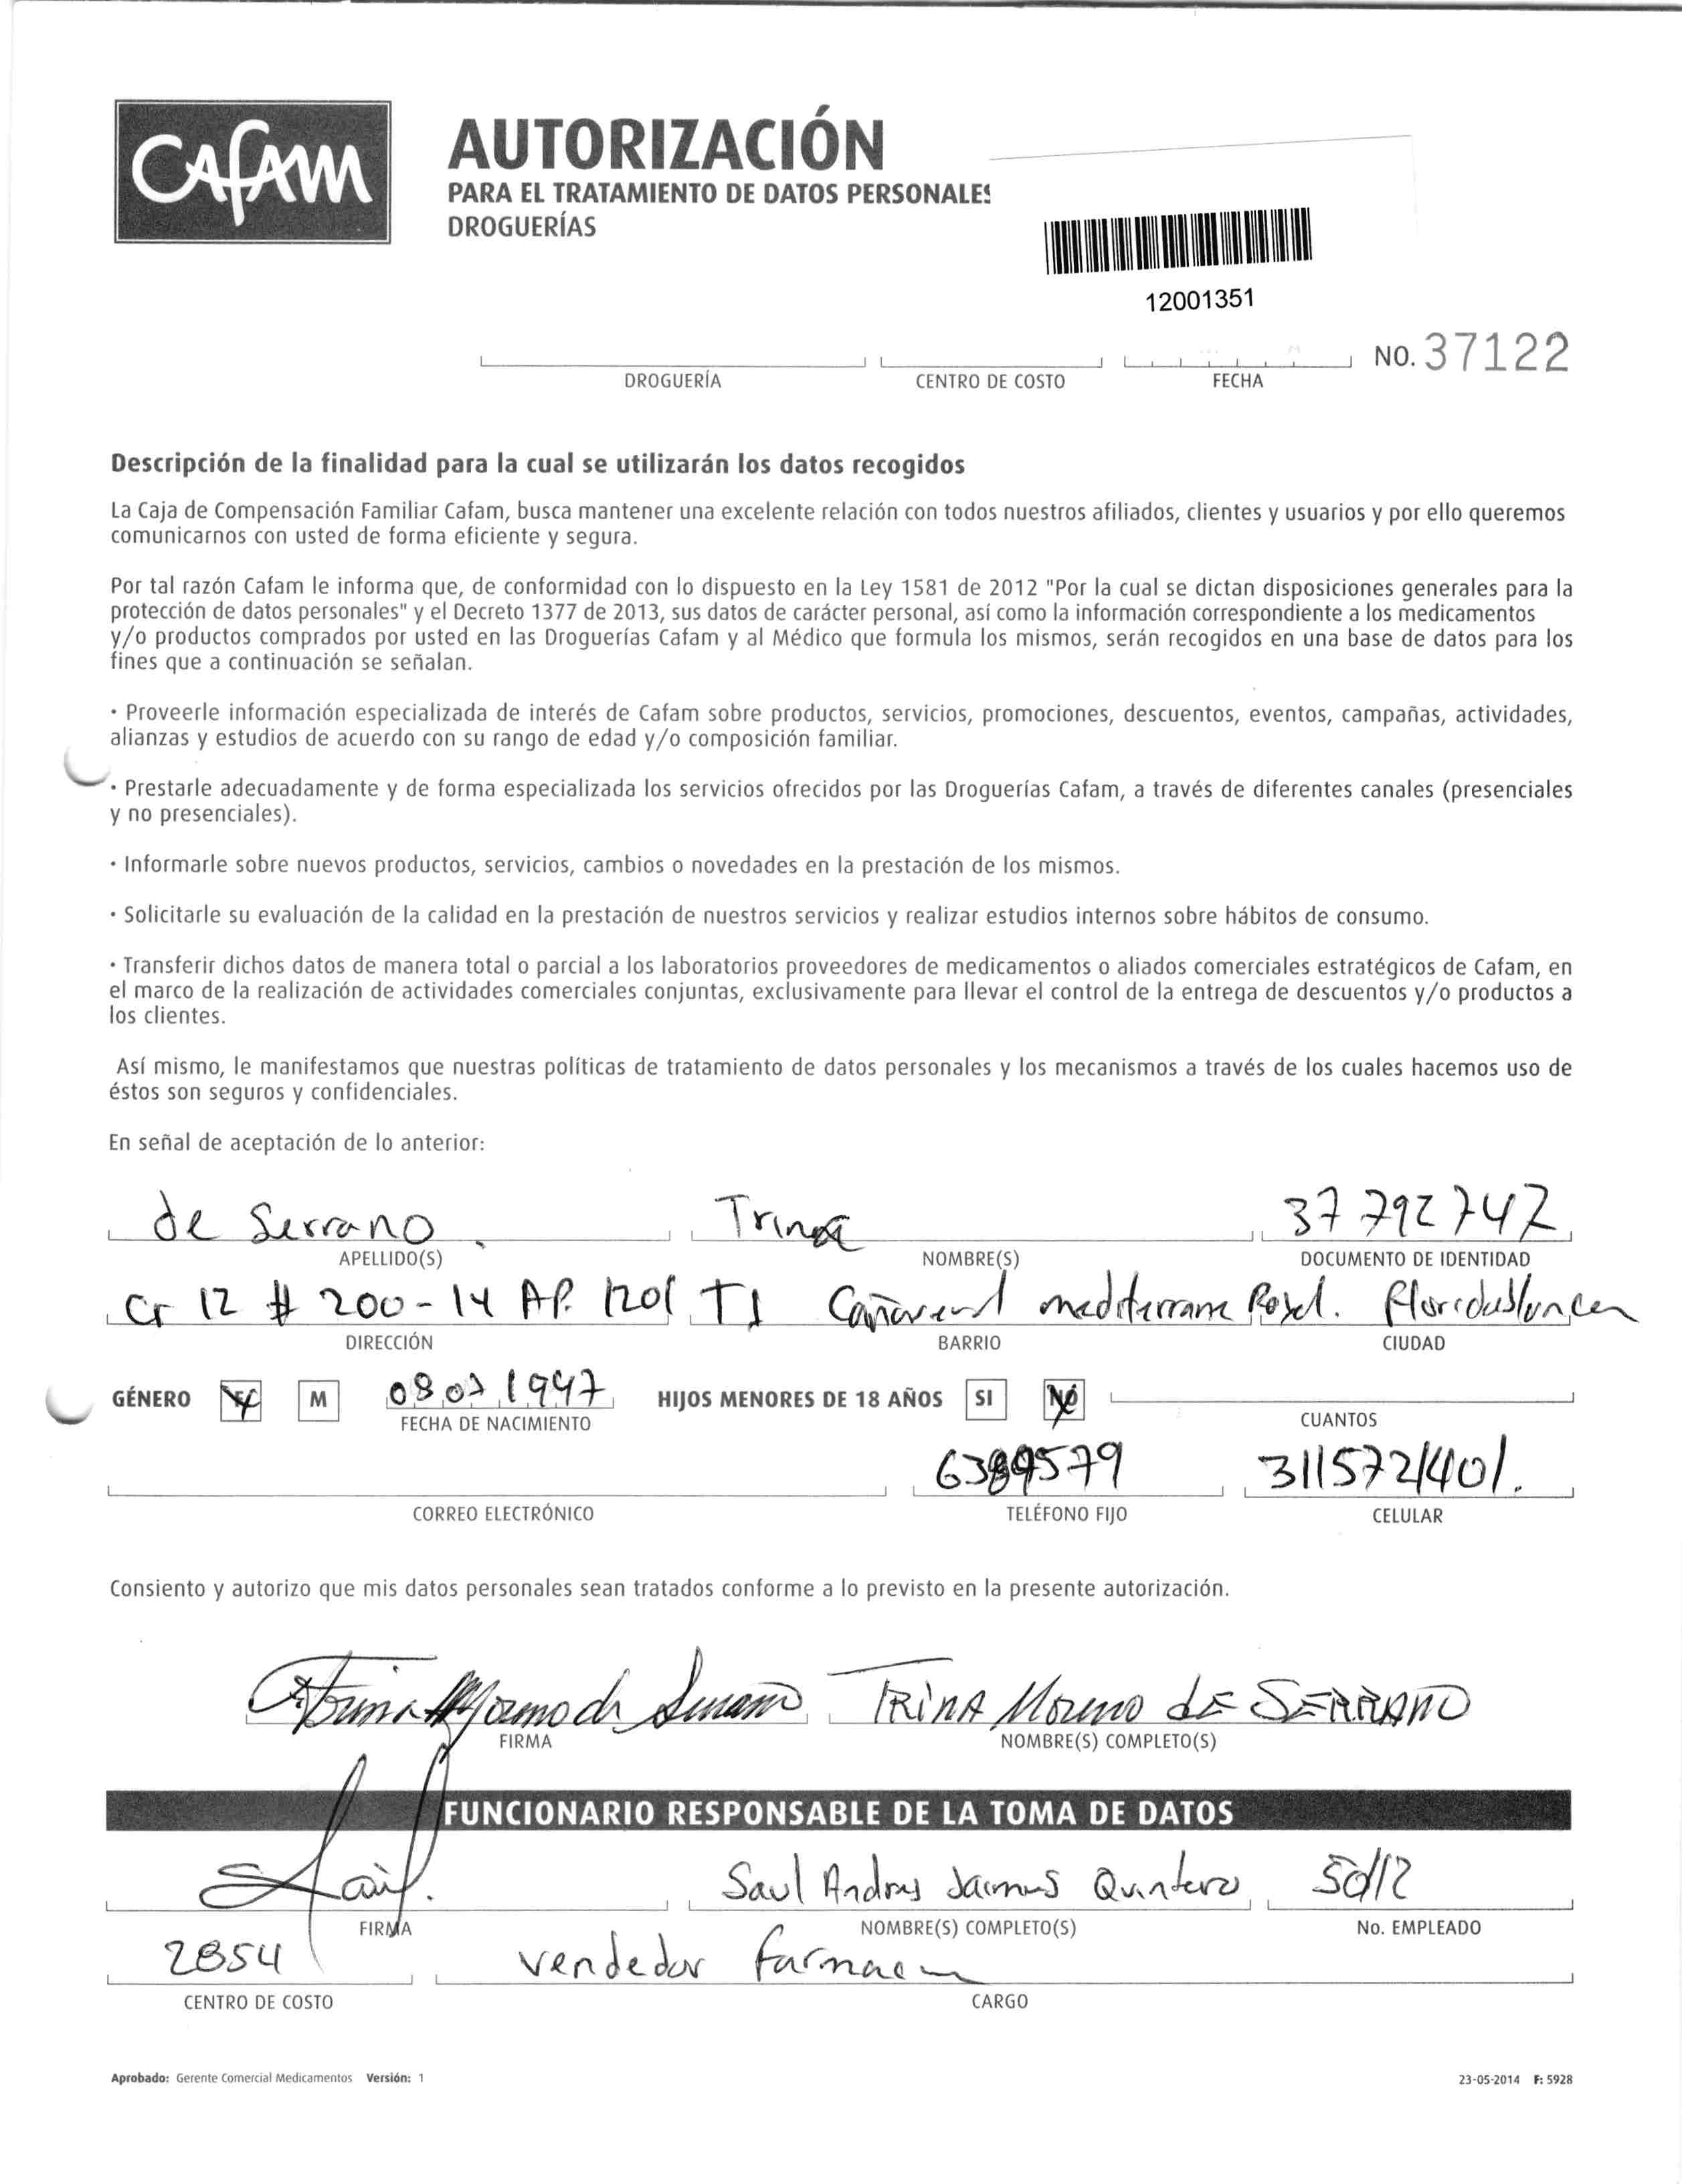 Cafam
AUTORIZACIÓN
PARA EL TRATAMIENTO DE DATOS PERSONALES
DROGUERÍAS
12001351
NO. 37122
DROGUERÍA CENTRO DE COSTO FECHA
Descripción de la finalidad para la cual se utilizarán los datos recogidos
La Caja de Compensación Familiar Cafam, busca mantener una excelente relación con todos nuestros afiliados, clientes y usuarios y por ello queremos
comunicarnos con usted de forma eficiente y segura.
Por tal razón Cafam le informa que, de conformidad con lo dispuesto en la Ley 1581 de 2012 "Por la cual se dictan disposiciones generales para la
protección de datos personales" y el Decreto 1377 de 2013, sus datos de carácter personal, así como la información correspondiente a los medicamentos
y/o productos comprados por usted en las Droguerías Cafam y al Médico que formula los mismos, serán recogidos en una base de datos para los
fines que a continuación se señalan.
· Proveerle información especializada de interés de Cafam sobre productos, servicios, promociones, descuentos, eventos, campañas, actividades,
alianzas y estudios de acuerdo con su rango de edad y/o composición familiar.
· Prestarle adecuadamente y de forma especializada los servicios ofrecidos por las Droguerías Cafam, a través de diferentes canales (presenciales
y no presenciales).
· Informarle sobre nuevos productos, servicios, cambios o novedades en la prestación de los mismos.
· Solicitarle su evaluación de la calidad en la prestación de nuestros servicios y realizar estudios internos sobre hábitos de consumo.
· Transferir dichos datos de manera total o parcial a los laboratorios proveedores de medicamentos o aliados comerciales estratégicos de Cafam, en
el marco de la realización de actividades comerciales conjuntas, exclusivamente para llevar el control de la entrega de descuentos y/o productos a
los clientes.
Así mismo, le manifestamos que nuestras políticas de tratamiento de datos personales y los mecanismos a través de los cuales hacemos uso de
éstos son seguros y confidenciales.
En señal de aceptación de lo anterior:
de Serrano Trina 37 792 747
APELLIDO(S) NOMBRE(S) DOCUMENTO DE IDENTIDAD
Cr 12 # 200-14 AP. 1201 T1 Cañaveral mediterrane
DIRECCIÓN BARRIO CIUDAD
GÉNERO F M 08 07 1947 HIJOS MENORES DE 18 AÑOS SI NO
FECHA DE NACIMIENTO CUANTOS
3115721401.
CORREO ELECTRÓNICO TELÉFONO FIJO CELULAR
Consiento y autorizo que mis datos personales sean tratados conforme a lo previsto en la presente autorización.
Trina Moreno de Serrano TRINA Moreno DE SERRANO
FIRMA NOMBRE(S) COMPLETO(S)
FUNCIONARIO RESPONSABLE DE LA TOMA DE DATOS
Saul Andres Jaimes Quintero 50112
FIRMA NOMBRE(S) COMPLETO(S) No. EMPLEADO
2854 vendedor
CENTRO DE COSTO CARGO
Aprobado: Gerente Comercial Medicamentos Versión: 1 23-05-2014 F: 5928